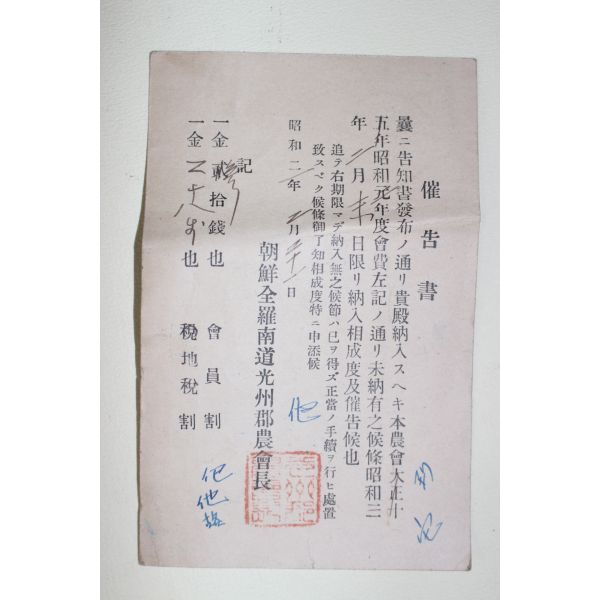 催告書
曩ニ告知書發布ノ通リ貴殿納入スヘキ本農會大正十
五年昭和元年度會費左記ノ通リ未納有之候條昭和三
年二月末日限リ納入相成度及催告候也
追テ右期限マデ納入無之候節ハ已ヲ得ズ正當ノ手續ヲ行ヒ處置
致スベク候條御了知相成度特ニ申添候
昭和二年 月 日
朝鮮全羅南道光州郡農會長
記
一金 拾錢也 會員割
一金 也 地稅割